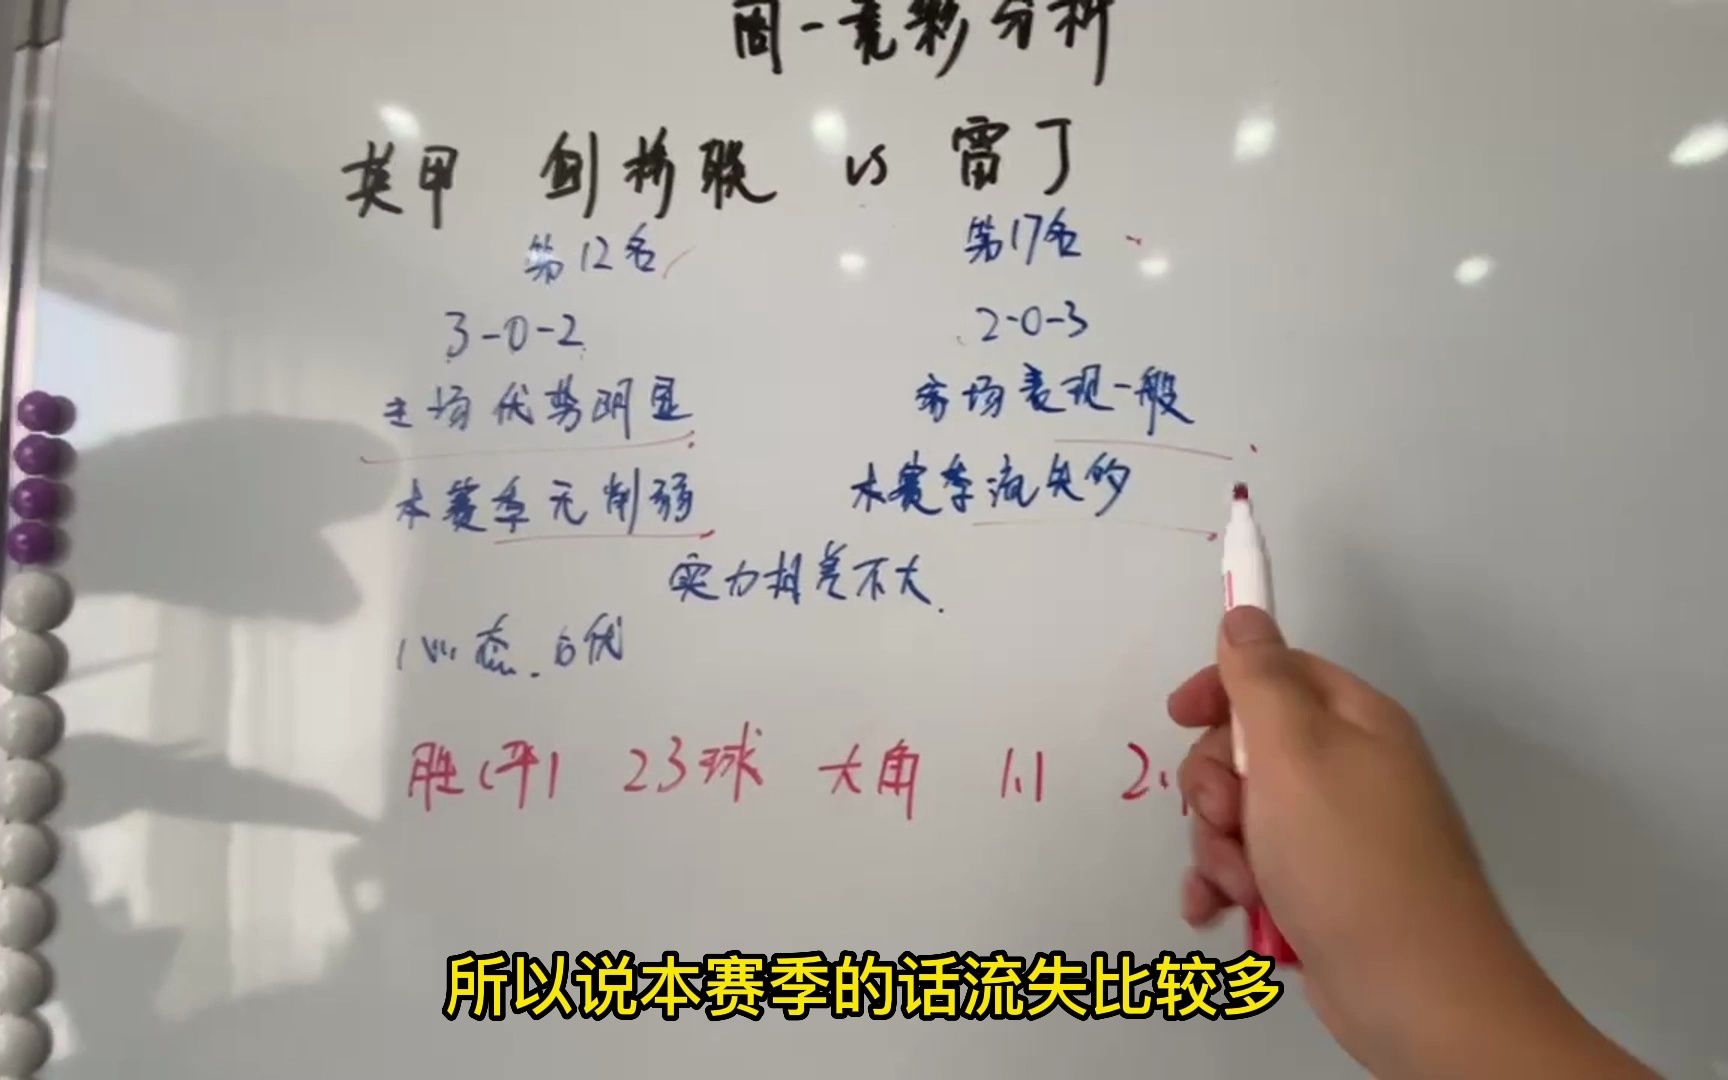 周一竞彩分析
英甲 剑桥联 vs 雷丁
第12名 第17名
3-0-2 2-0-3
主场优势明显 客场表现一般
本赛季无削弱 本赛季流失多
实力相差不大.
心态.占优
胜(平) 23球 大角 1.1 2.1
所以说本赛季的话流失比较多